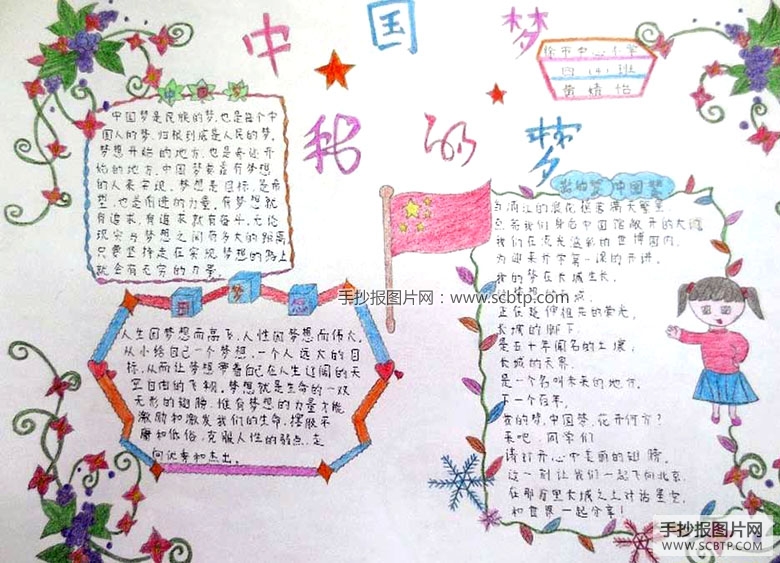 中国梦
我的梦
徐市中心小学
四(4)班
黄婧怡
中国梦
中国梦是民族的梦,也是每个中
国人的梦。归根到底是人民的梦。
梦想开始的地方,也是奇迹开
始的地方,中国梦要靠有梦想
的人来实现。梦想是目标,是希
望,也是前进的力量。有梦想就
有追求,有追求就有奋斗,无论
现实与梦想之间有多大的距离
只要坚持走在实现梦想的路上
就会有无穷的力量。
国梦
手抄报图片网:www.scbtp.com
人生因梦想而高飞,人性因梦想而伟大。
从小给自己一个梦想,一个人远大的目
标,从而让梦想带着自己在人生辽阔的天
空自由的飞翔。梦想就是生命的一双
无形的翅膀,惟有梦想的力量才能
激励和激发我们的生命,摆脱平
庸和低俗,克服人性的弱点,走
向优秀和杰出。
我的梦 中国梦
当浦江的浪花摇着满天繁星
点亮我们身后中国馆敞开的大门
我们在流光溢彩的世博园内
为迎来开学第一课的开讲。
我的梦在长城生长,
正在延伸祖先的荣光,
长城的脚下,
是五千年闻名的土壤,
长城的天幕,
是一个名叫未来的地方。
下一个百年,
我的梦,中国梦,花开何方?
来吧,同学们
请打开心中美丽的翅膀,
这一刻让我们一起飞向北京,
在那万里长城之上对话星空,
和世界一起分享!
手抄报图片网
WWW.SCBTP.COM